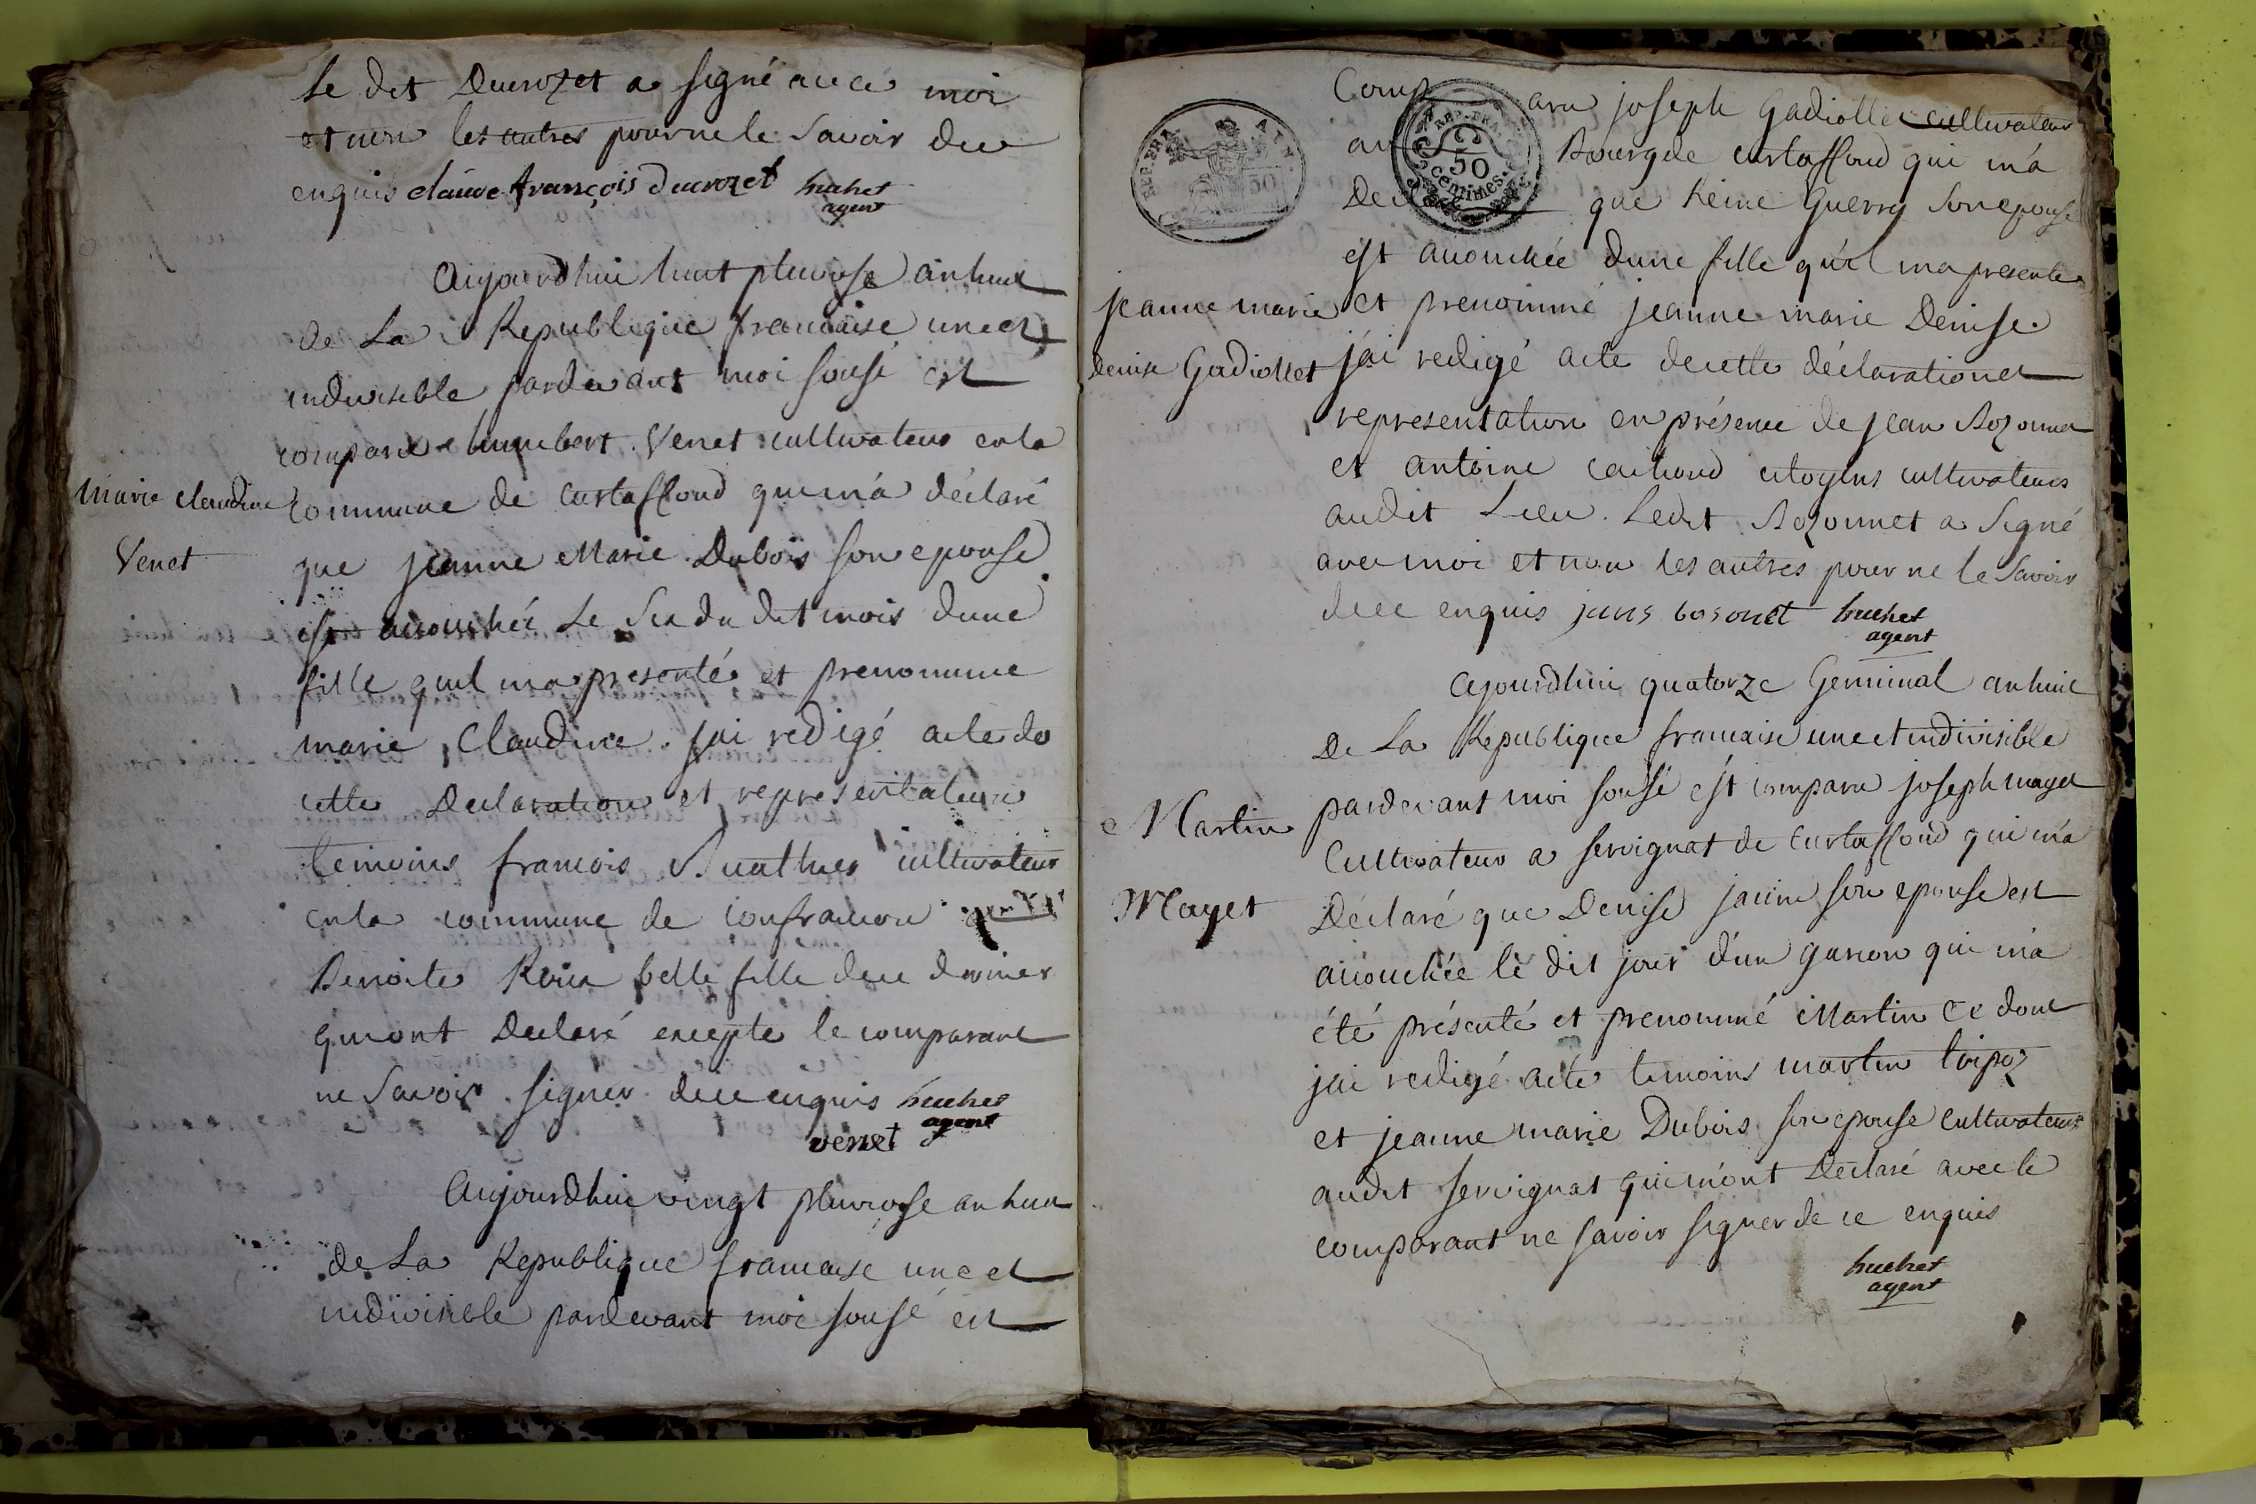 le dit Ducrozet a signé avec moi
et non les autres pour ne le savoir de ce
enquis claude françois ducrozet huchet
agent
aujourdhui huit pluviose an huit
de la Republique francaise une et
indivisible pardevant moi sousé est
comparu humbert Venet cultivateur en la
Marie Claudine
Venet
commune de curtaffond qui m'a déclaré
que jeanne Marie Dubois son epouse
est accouchée le six du dit mois dune
fille quil ma presenté et prenommé
marie Claudine. jai redigé acte de
cette Declaration et representation
temoins francois cultivateur
en la commune de confrancon et
Benoite Roux belle fille de ce dernier
qui mont Declaré excepté le comparant
ne Savoir signer de ce enquis huchet
agent
venet
Aujourdhui vingt pluviose an huit
de la Republique francaise une et
indivisible pardevant moi sousé est
REP. FRA.
50
centimes
Comparu joseph Gadiollet cultivateur
au Bourg de curtaffond qui m'a
Declaré que Reine Guerry son epouse
est accouchée dune fille qu'il ma presenté
jeanne marie
denise Gadiollet
et prenommé jeanne marie Denise.
j'ai redigé acte de cette déclaration et
representation en présence de jean Bozonnet
et antoine citoyens cultivateurs
audit Lieu. Ledit Bozonnet a Signé
avec moi et non les autres pour ne le Savoir
de ce enquis bosonet huchet
agent
ajourdhui quatorze Germinal an huit
De La Republique francaise une et indivisible
Martin
Mayet
pardevant moi sousé est comparu joseph mayet
Cultivateur a servignat de curtaffond qui m'a
Déclaré que Denise son epouse est
accouchée le dit jour d'un garcon qui m'a
été présenté et prenommé Martin ce dont
jai redigé acte temoins martin
et jeanne marie Dubois son epouse cultivateurs
audit servignat qui m'ont Déclaré avec le
comparant ne savoir signer de ce enquis
huchet
agent